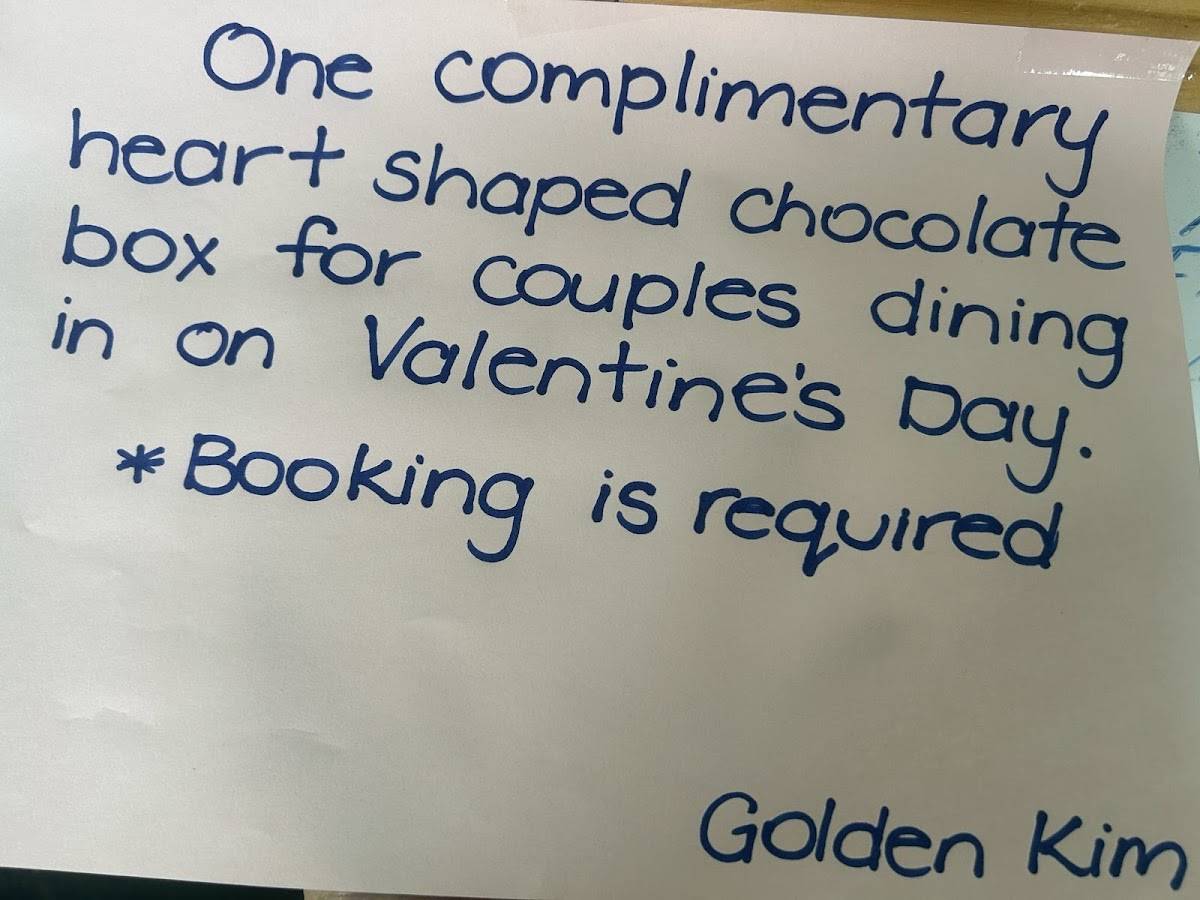 One complimentary
heart shaped chocolate
box for couples dining
in on Valentine's Day.
* Booking is required
Golden Kim